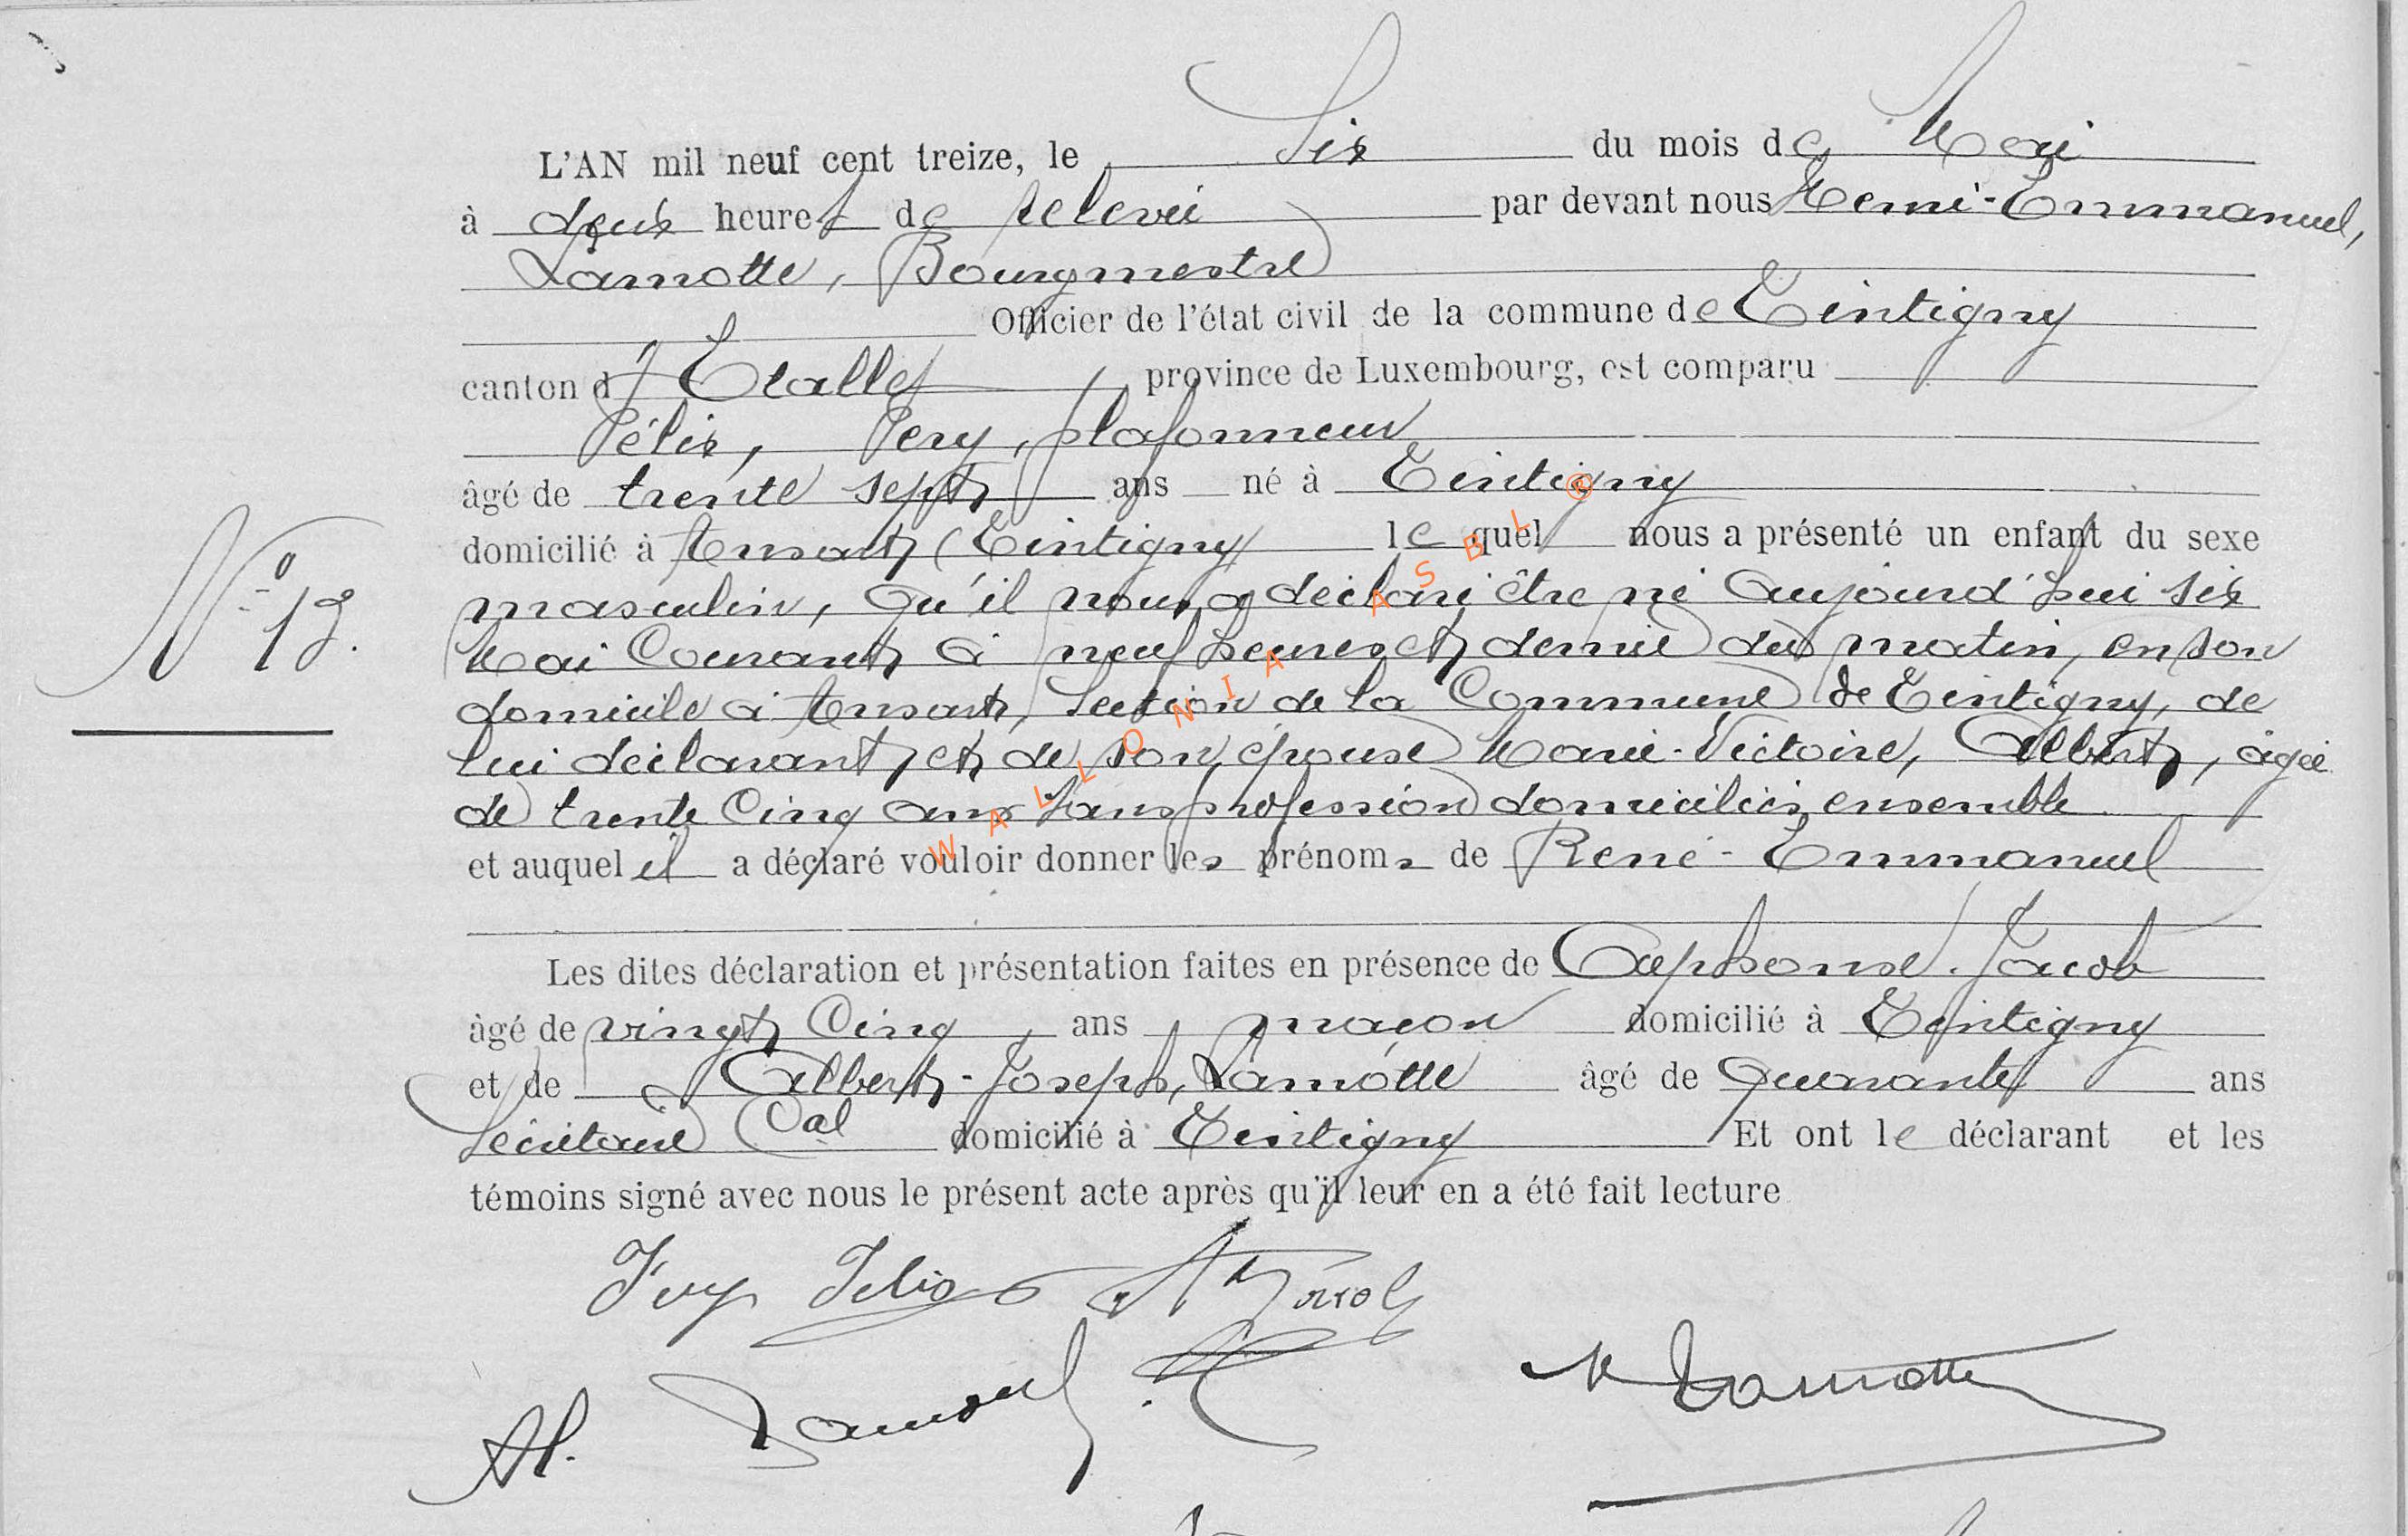 L'AN mil neuf cent treize, le Six du mois de Mai
à deux heures de relevée par devant nous Henri-Emmanuel,
Lamotte, Bourgmestre
Officier de l'état civil de la commune de Tintigny
canton d'Etalle, province de Luxembourg, est comparu
Félix, Fery, plafonneur
âgé de trente sept ans né à Tintigny
domicilié à Ansart (Tintigny) lequel nous a présenté un enfant du sexe
N° 13.
masculin, qu'il nous a déclaré être né aujourd'hui six
Mai Courant à neuf heures et demie du matin, en son
domicile à Ansart, Section de la Commune de Tintigny, de
lui déclarant, et de son épouse Marie-Victoire, Albert, âgée
de trente cinq ans sans profession domiciliés ensemble
et auquel il a déclaré vouloir donner les prénoms de René-Emmanuel
Les dites déclaration et présentation faites en présence de Alphonse Jacob
âgé de vingt Cinq ans, maçon domicilié à Tintigny
et de Albert-Joseph, Lamotte âgé de Quarante ans
Secrétaire Cal domicilié à Tintigny Et ont le déclarant et les
témoins signé avec nous le présent acte après qu'il leur en a été fait lecture
Fery Félix A Jacob
Al. Lamotte H Lamotte
WALLONIA ASBL ®